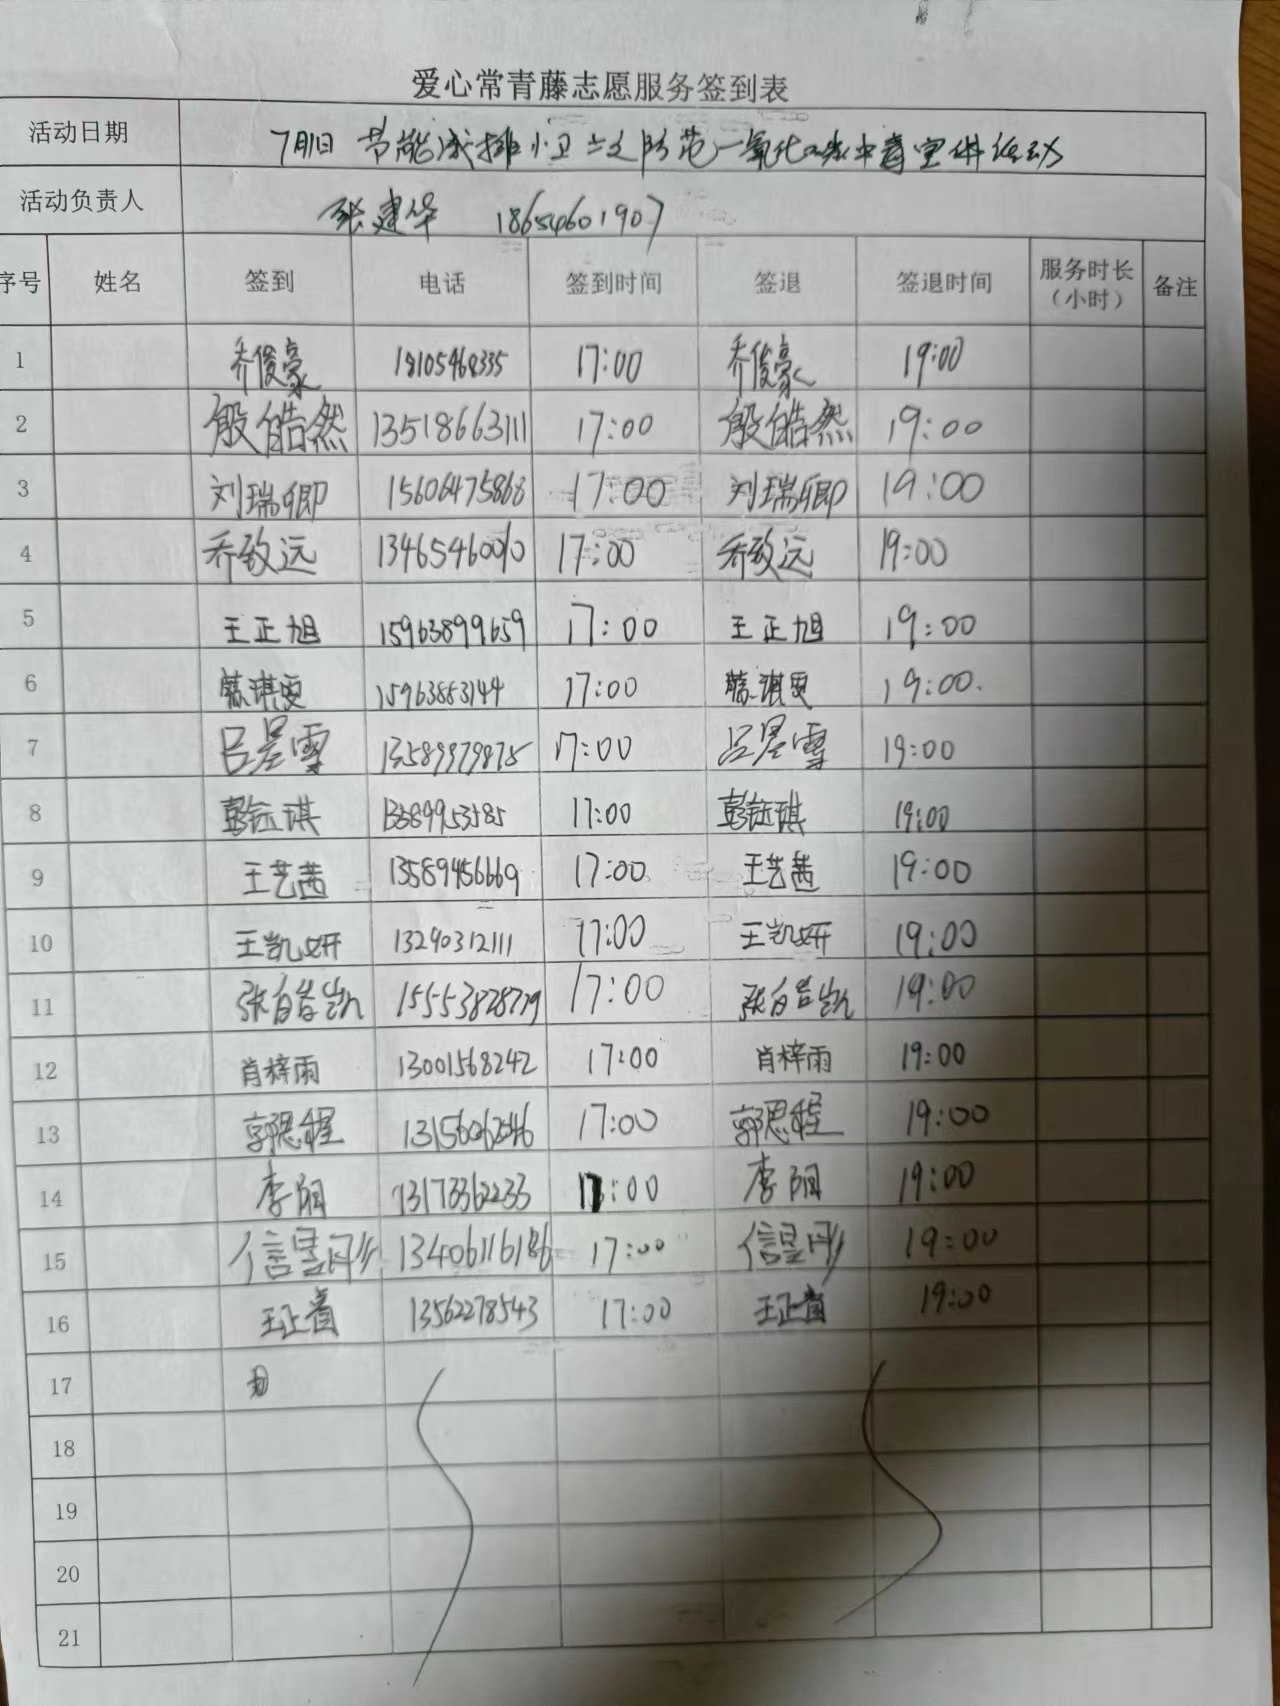 爱心常青藤志愿服务签到表
活动日期 7月1日 节能减排小卫士之防范一氧化碳中毒宣传活动
活动负责人 张建华 18654601907
序号 姓名 签到 电话 签到时间 签退 签退时间 服务时长（小时） 备注
1 乔俊豪 18105468335 17:00 乔俊豪 19:00
2 殷皓然 13518663111 17:00 殷皓然 19:00
3 刘瑞卿 15606475868 17:00 刘瑞卿 19:00
4 乔致远 17:00 乔致远 19:00
5 王正旭 15963899659 17:00 王正旭 19:00
6 15963853144 17:00 19:00.
7 吕星雪 13589979875 17:00 吕星雪 19:00
8 彭钰琪 13589953585 17:00 彭钰琪 19:00
9 王艺茜 13589456669 17:00 王艺茜 19:00
10 王凯妍 13290312111 17:00 王凯妍 19:00
11 17:00 19:00
12 肖梓雨 13001568242 17:00 肖梓雨 19:00
13 郭思程 17:00 郭思程 19:00
14 13173362233 17:00 19:00
15 13406116186 17:00 19:00
16 13562278543 17:00 19:00
17
18
19
20
21